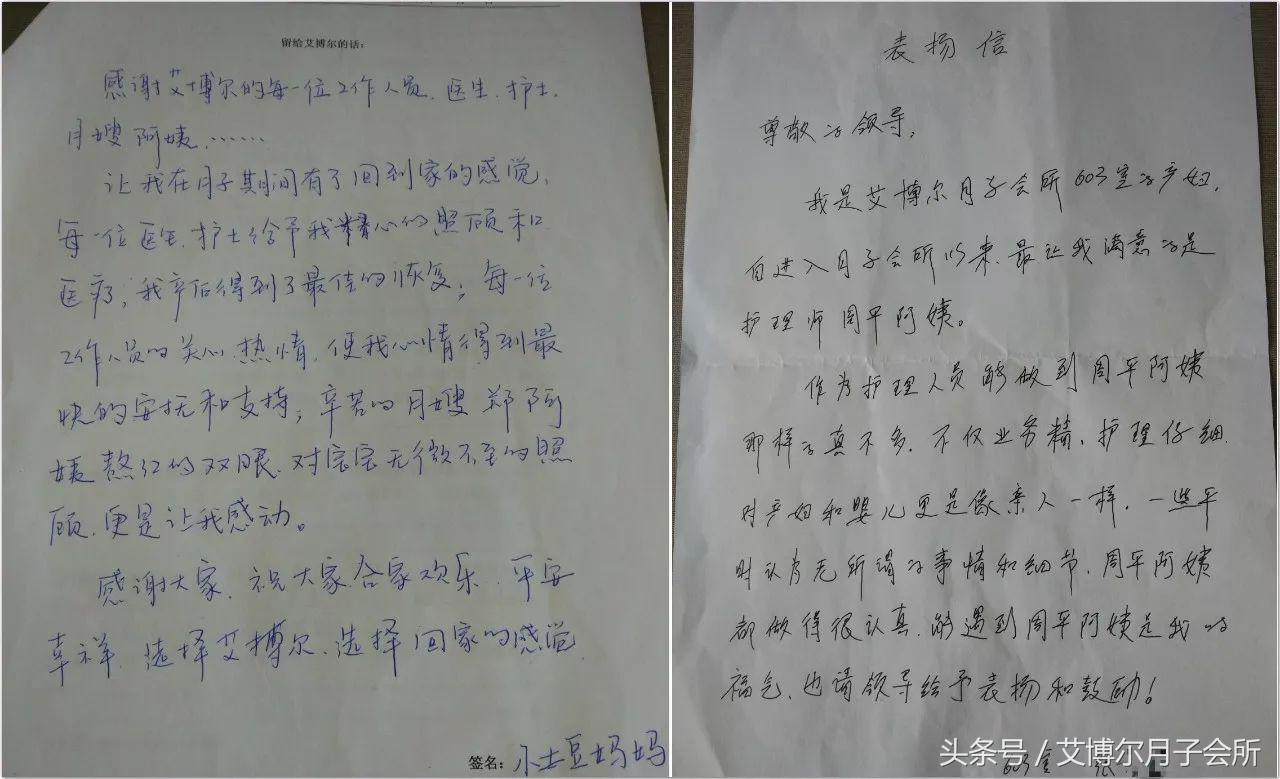 留给艾博尔的话:
感谢艾博尔的每一位工作人员、医生、护士、
月嫂阿姨、……
让我在月子期间有了回到家的感觉、
每一位医生、护士给予我精心的照顾和
医疗;我产后得到了最佳的恢复;每一位
工作人员的关心热情、使我心情得到最
快的安抚和支持;辛苦的月嫂郑阿
姨熬红的双眼、对宝宝无微不至的照
顾、更是让我感动。
感谢大家、祝大家合家欢乐 平安
幸祥、选择艾博尔、选择回家的感觉
签名:小土豆妈妈
表扬信
尊敬的领导,
我是艾博尔月子会所603室的产妇,
自进入月子会所以来、最让我满意的是
护理师周平阿姨。
作为护理人员能做到周平阿姨
那样的真不多、不仅业务精、护理仔细、
对产妇和婴儿更是像亲人一样,一些平
时认为无所谓的事情和细节、周平阿姨
都做得很认真、能遇到周平阿姨是我的
福气、也请领导给予表扬和鼓励!
603室 张
头条号/艾博尔月子会所